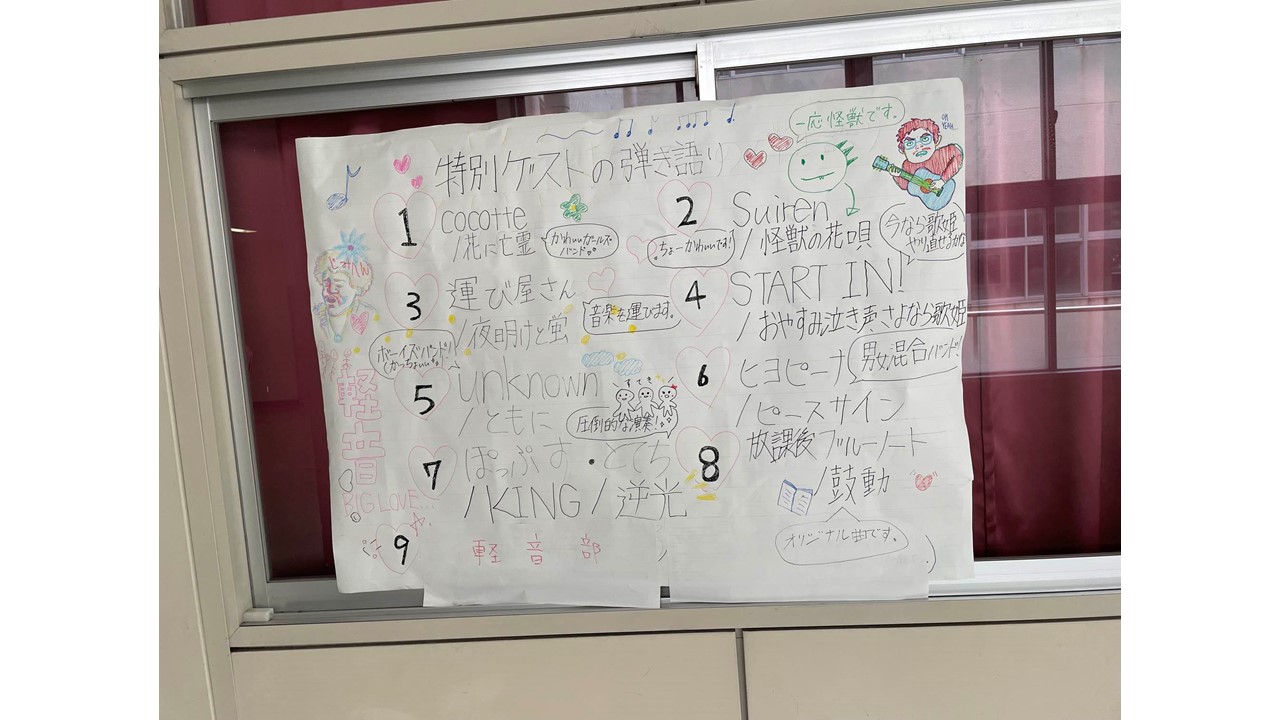 特別ゲストの弾き語り
一応怪獣です。
OH YEAH...
1 cocotte
/花に亡霊
かわいいガールズバンド♪
2 Suiren
/怪獣の花唄
ちょーかわいいです!
今なら歌姫
やり直せるかな
3 運び屋さん
/夜明けと蛍
音楽を運びます。
4 START IN!
/おやすみ泣き声、さよなら歌姫
ボーイズバンド!
かっちょいいな
5 unknown
/ともに
すてき
圧倒的な演奏!
6 ヒヨピーナ
/ピースサイン
男女混合バンド!
7 ぽっぷす・とてち
/KING/逆光
8 放課後ブルーノート
/鼓動
オリジナル曲です。
9 軽音部
軽音
BIG LOVE...